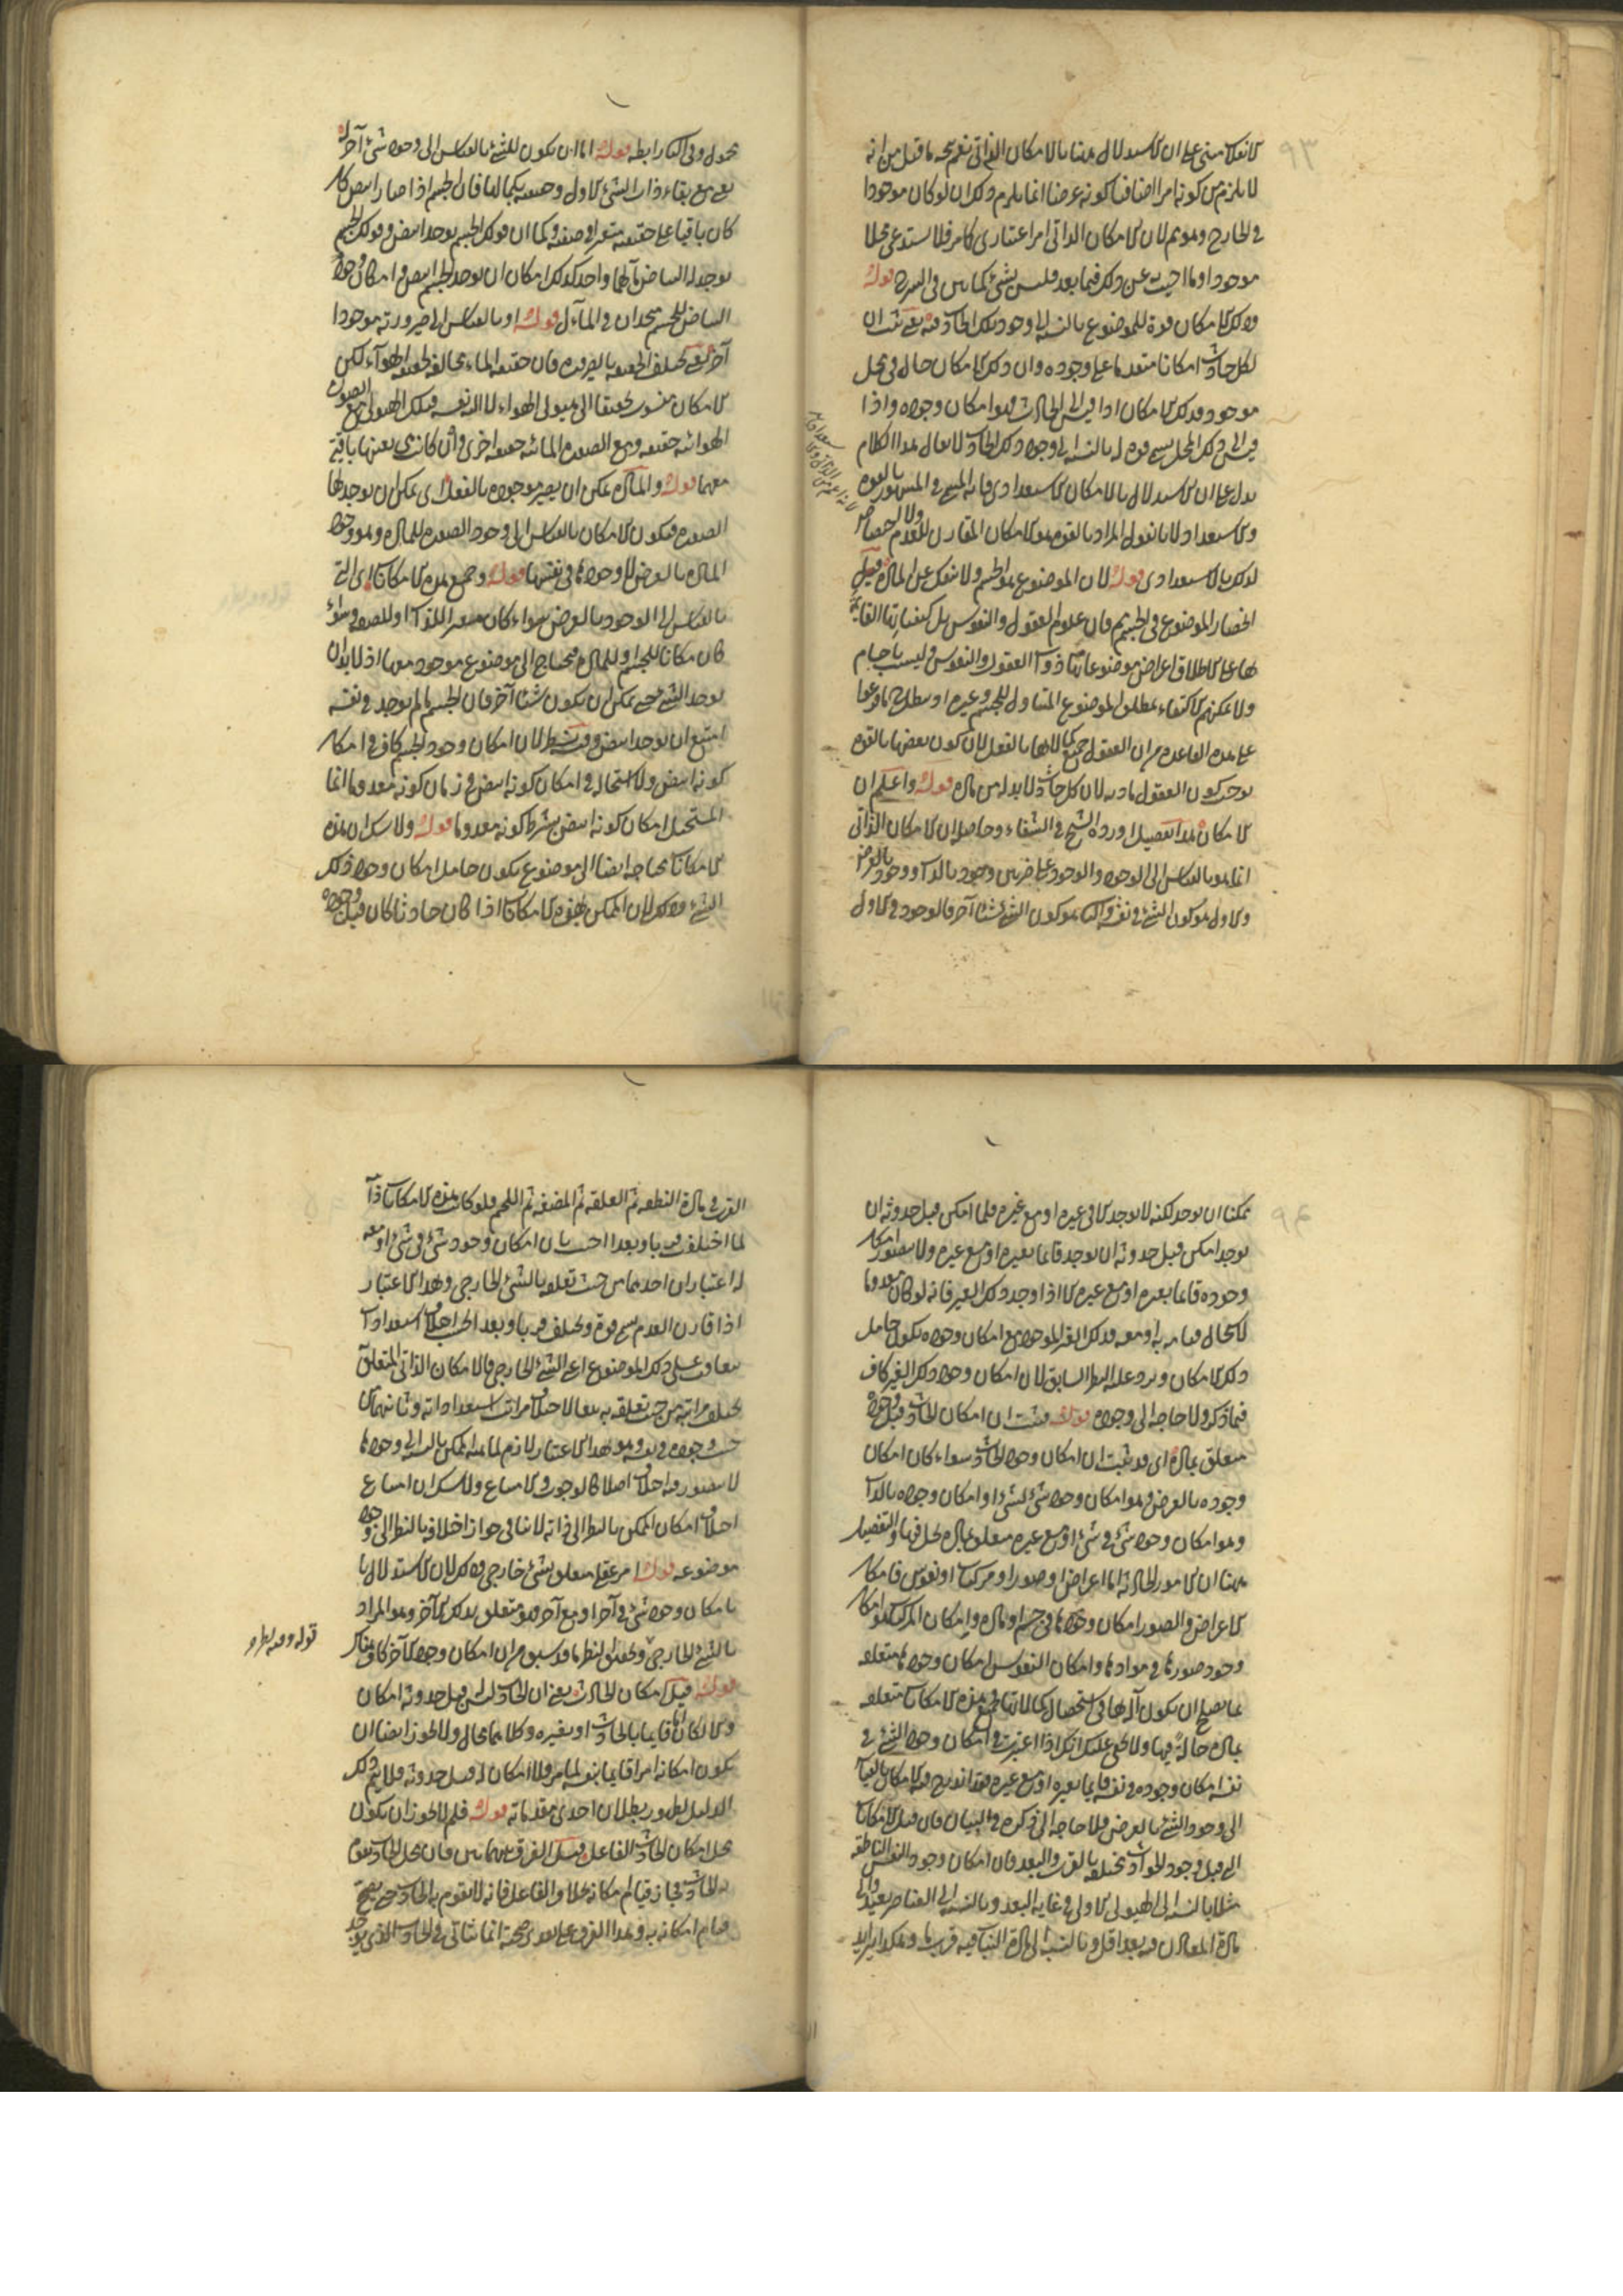 ٩٣
لانفكاكـ مبنى على ان الاستدلال ههنا بالامكان الذاتى نعم يتجه ما قيل من انه
لا يلزم من كونه امرا اضافيا كونه عرضا انما يلزم ذلك ان لو كان موجودا
فى الخارج وهو ثم لان الامكان الذاتى امر اعتبارى كما مر فلا يستدعى محلا
موجودا وما اجيب عن ذلك فيما بعد فليس بشئ كما بين فى الشرح قوله
وذلك الامكان قوة للموضوع بالنسبة الى وجود ذلك الحادث فيه يعنى ثبت ان
لكل حادث امكانا متقدما على وجوده وان ذلك الامكان حال فى محل
موجود فذلك الامكان اذا قيس الى الحادث فهو امكان وجوده واذا
قيس الى ذلك المحل يسمى قوة له بالنسبة الى وجود ذلك الحادث لا يقال هذا الكلام
يدل على ان الاستدلال بالامكان الاستعدادى فانه المسمى فى المشهور بالقوة
والاستعداد لانا نقول المراد بالقوة هو الامكان المقارن للعدم ولا اختصاص
لذلك بالاستعدادى قوله لان الموضوع هو الجسم ولا ينفك عن المادة قيل
انحصار الموضوع فى الجسم ثم فان علوم العقول والنفوس بل كيفياتها القائمة
بها على الاطلاق اعراض موضوعاتها ذوات العقول والنفوس وليست باجسام
ولا يمكنهم الاكتفاء بمطلق الموضوع المتناول للجسم وغيره او يبطل ح ما فرعوا
على هذه القاعدة من ان العقول جميع كمالاتها بالفعل لان كون بعضها بالقوة
يوجب كون العقول مادية لان كل حادث لا بد له من مادة قوله واعلم ان
الامكان هذا التفصيل اورده الشيخ فى الشفاء وحاصله ان الامكان الذاتى
انما هو بالقياس الى الوجود والوجود على ضربين وجود بالذات ووجود بالعرض
والاول هو كون الشئ فى نفسه والثانى هو كون الشئ شيئا آخر فالوجود فى الاول
محمول وفى الثانى رابطة قوله اما ان يكون للشئ بالقياس الى وجود شئ آخر له
يعنى مع بقاء ذات الشئ الاول وحقيقته بكمالها فان الجسم اذا صار ابيض كان
كان باقيا على حقيقته متغيرا فى صفته وكما ان قولك الجسم يوجد ابيض وقولك الجسم
يوجد له البياض مآلهما واحد كذلك امكان ان يوجد الجسم ابيض وامكان وجود
البياض للجسم متحدان فى المآل قوله او بالقياس الى ضرورته موجودا
آخر يعنى مختلف الحقيقة بالضرورة فان حقيقة الماء مخالفة لحقيقة الهواء لكن
الامكان منسوب حقيقة الى هيولى الهواء لا اليه نفسه فتلك الهيولى مع الصورة
الهوائية حقيقة ومع الصورة المائية حقيقة اخرى وان كانت هى بعينها باقية
معهما قوله والمادة يمكن ان يصير موجودة بالفعل اى يمكن ان يوجد لها
الصورة فيكون الامكان بالقياس الى وجود الصورة للمادة وهو وجود
المادة بالعرض لا وجودها فى نفسها قوله وجميع هذه الامكانات اى التى
بالقياس الى الوجود بالعرض سواء كان متغير الذات او للصفة وسواء
كان مكانا للجسم او للمادة محتاج الى موضوع موجود معها اذ لا بد ان
يوجد الشئ حتى يمكن ان يكون شيئا آخر فان الجسم ما لم يوجد فى نفسه
امتنع ان يوجد ابيض وفيه نظر لان امكان وجود الجسم كاف فى امكان
كونه ابيض ولا استحالة فى امكان كونه ابيض فى زمان كونه معدوما انما
المستحيل امكان كونه ابيض بشرط كونه معدوما قوله ولا شك ان هذه
الامكانات محتاجة ايضا الى موضوع يكون حامل امكان وجود ذلك
الشئ وذلك لان الممكن بهذه الامكانات اذا كان حادثا كان قبل وجوده
٩٤
ممكنا ان يوجد لكنه لا يوجد الا فى غيره او مع غيره فلما امكن قبل حدوثه ان
يوجد امكن قبل حدوثه ان يوجد قائما بغيره او مع غيره ولا يتصور امكان
وجوده قائما بغيره او مع غيره الا اذا وجد ذلك الغير فانه لو كان معدوما
لاستحال قيامه به او معه فذلك الغير الموجود مع امكان وجوده يكون حامل
ذلك الامكان ويرد عليه النظر السابق لان امكان وجود ذلك الغير كاف
فيما ذكر ولا حاجة الى وجوده قوله فثبت ان امكان الحادث قبل وجوده
متعلق بمادة اى قد ثبت ان امكان وجود الحادث سواء كان امكان
وجوده بالعرض وهو امكان وجود شئ لشئ او امكان وجوده بالذات
وهو امكان وجود شئ فى شئ او مع غيره متعلق بمادة يحل فيها والتفصيل
ههنا ان الامور الحادثة اما اعراض او صور او مركبات او نفوس فامكان
الاعراض والصور امكان وجودها فى جسم او مادة وامكان المركبات هو امكان
وجود صورها فى موادها وامكان النفوس امكان وجودها متعلقة
بما يصلح ان يكون آلة لها فى استحصال كمالاتها فجميع هذه الامكانات متعلقة
بمادة حالة فيها ولا يخفى عليك انك اذا اعتبرت فى امكان وجود الشئ فى
نفسه امكان وجوده فى نفسه قائما بغيره او مع غيره فقد اندرج فيه الامكان بالقياس
الى وجود الشئ بالعرض فلا حاجة الى ذكره فى البيان فان قيل الامكانات
التى قبل وجود الحوادث مختلفة بالقرب والبعد فان امكان وجود النفس الناطقة
مثلا بالنسبة الى الهيولى الاولى فى غاية البعد وبالنسبة الى العناصر بعيد والى
مادة المعادن فيه بعد اقل وبالنسبة الى مادة النبات فيه قرب ما وهكذا يتزايد
القرب فى مادة النطفة ثم العلقة ثم المضغة ثم اللحم فلو كانت هذه الامكانات ذاتية
لما اختلفت قربا وبعدا اجيب بان امكان وجود شئ فى شئ او معه
له اعتباران احدهما من حيث تعلقه بالشئ الخارجى وبهذا الاعتبار
اذا قارن العدم سمى قوة ويختلف قربا وبعدا بحسب اختلاف استعدادات
متعاقبة على ذلك الموضوع اعنى الشئ الخارجى فالامكان الذاتى المتعلق
يختلف مراتبه من حيث تعلقه به تبعا لاختلاف مراتب استعداداته وثانيهما من
حيث وجوده فى نفسه وهو بهذا الاعتبار لازم لماهية الممكن بالنسبة الى وجودها
لا يتصور فيه اختلاف اصلا كالوجوب والامتناع ولا شك ان امتناع
اختلاف امكان الممكن بالنظر الى ذاته لا ينافى جواز اختلافه بالنظر الى وجود
موضوعه قوله امر عقلى متعلق بشئ خارجى وذلك لان الاستدلال
بامكان وجود شئ فى آخر او مع آخر فهو متعلق بذلك الآخر وهو المراد
بالشئ الخارجى وتحقيق النظر ما قد سبق من ان امكان وجود الآخر كاف هناك
قوله قيل امكان الحادث يعنى ان الحادث ليس قبل حدوثه امكان
والا لكان اما قائما بالحادث او بغيره وكلاهما محال ولا يجوز ايضا ان
يكون امكانه امرا قائما بنفسه لما مر فلا امكان له قبل حدوثه فلا يتم ذلك
الدليل لظهور بطلان احدى مقدماته قوله فلم لا يجوز ان يكون
محل امكان الحادث الفاعل قيل الفرق بينهما بين فان محل الحادث يتقوم
به الحادث فجاز قيام امكانه بمحله او الفاعل فانه لا يقوم به الحادث حتى يصح
قيام امكانه به وهذا الفرق على تقدير صحته انما يتأتى فى الحادث الذى يوجد
قوله وفيه نظر